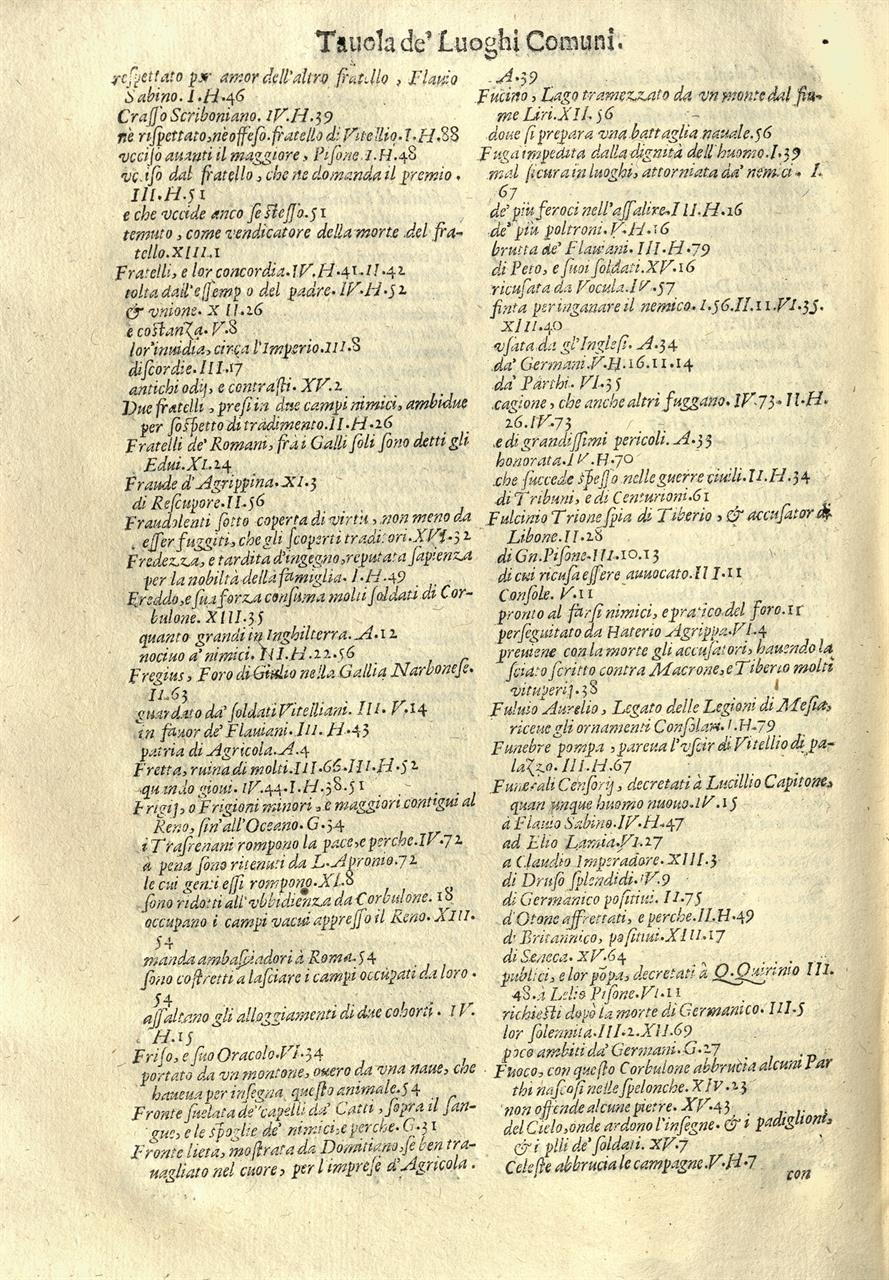 Tauola de' Luoghi Comuni.
reſpettato per amor dell'altro fratello, Flauio
Sabino. I.H.46
Craſſo Scriboniano. IV.H.39
nè riſpettato, nè offeſo. fratello di Vitellio. I.H.88
vcciſo auanti il maggiore, Piſone. I.H.48
vcciſo dal fratello, che ne domanda il premio.
III.H.51
e che vccide anco ſe ſteſſo. 51
temuto, come vendicatore della morte del fra-
tello. XIII.1
Fratelli, e lor concordia. IV.H.41.II.42
tolta dall'eſſempio del padre. IV.H.52
& vnione. XII.26
e coſtanza. V.8
lor'inuidia, circa l'Imperio. III.8
diſcordie. III.17
antichi odij, e contraſti. XV.2
Due fratelli, preſi in due campi nimici, ambidue
per ſoſpetto di tradimento. II.H.26
Fratelli de' Romani, frà i Galli ſoli ſono detti gli
Edui. XI.24
Fraude d'Agrippina. XI.3
di Reſcupore. II.56
Fraudolenti ſotto coperta di virtù, non meno da
eſſer fuggiti, che gli ſcoperti traditori. XVI.32
Fredezza, e tardita d'ingegno, reputata ſapienza
per la nobiltà della famiglia. I.H.49
Freddo, e ſua forza conſuma molti ſoldati di Cor-
bulone. XIII.35
quanto grandi in Inghilterra. A.12
nociuo a' nimici. III.H.22.56
Fregius, Foro di Giulio nella Gallia Narboneſe.
II.63
guardato da' ſoldati Vitelliani. III. V.14
in fauor de' Flauiani. III. H.43
patria di Agricola. A.4
Fretta, ruina di molti. III.66.III.H.52
quando gioui. IV.44.I.H.38.51
Frigij, o Frigioni minori, e maggiori contigui al
Reno, ſin'all'Oceano. G.34
i Traſrenani rompono la pace, e perche. IV.72
a pena ſono ritenuti da L. Apronio. 72
le cui genti eſſi rompono. XI.8
ſono ridotti all'vbbidienza da Corbulone. 18
occupano i campi vacui appreſſo il Reno. XIII.
54
manda ambaſciadori à Roma. 54
ſono coſtretti a laſciare i campi occupati da loro.
54
aſſaltano gli alloggiamenti di due cohorti. IV.
H.15
Friſo, e ſuo Oracolo. VI.34
portato da vn montone, ouero da vna naue, che
haueua per inſegna queſto animale. 54
Fronte ſuelata de' capelli da' Catti, ſopra il ſan-
gue, e le ſpoglie de' nimici, e perche. G.31
Fronte lieta, moſtrata da Domitiano, ſe ben tra-
uagliato nel cuore, per l'impreſe d'Agricola.
A.39
Fucino, Lago tramezzato da vn monte dal fiu-
me Liri. XII.56
doue ſi prepara vna battaglia nauale. 56
Fuga impedita dalla dignità dell'huomo. I.39
mal ſicura in luoghi, attorniata da' nemici. I.
67
de' più feroci nell'aſſalire. III.H.26
de' più poltroni. V.H.16
brutta de' Flauiani. III.H.79
di Peto, e ſuoi ſoldati. XV.16
ricuſata da Vocula. IV.57
finta per inganare il nemico. I.56.II.11.VI.35.
XIII.40
vſata da gl'Ingleſi. A.34
da' Germani. V.H.16.11.14
da' Parthi. VI.35
cagione, che anche altri fuggano. IV.73. II.H.
26.IV.73
e di grandiſſimi pericoli. A.33
honorata. IV.H.70
che ſuccede ſpeſſo nelle guerre ciuili. II.H.34
di Tribuni, e di Centurioni. 61
Fulcinio Trione ſpia di Tiberio, & accuſator di
Libone. II.28
di Gn. Piſone. III.10.13
di cui ricuſa eſſere auuocato. III.11
Conſole. V.11
pronto al farſi nimici, e pratico del foro. 11
perſeguitato da Haterio Agrippa. VI.4
preuiene con la morte gli accuſatori, hauendo la
ſciato ſcritto contra Macrone, e Tiberio molti
vituperij. 38
Fuluio Aurelio, Legato delle Legioni di Meſia,
riceue gli ornamenti Conſolari. I.H.79
Funebre pompa, pareua l'vſcir di Vitellio di pa-
lazzo. III.H.67
Funerali Cenſorij, decretati à Lucillio Capitone,
quantunque huomo nuouo. IV.15
à Flauio Sabino. IV.H.47
ad Elio Lamia. VI.27
a Claudio Imperadore. XIII.3
di Druſo ſplendidi. IV.9
di Germanico poſitiui. II.75
d'Otone affrettati, e perche. II.H.49
d'Britannico, poſitiui. XIII.17
di Seneca. XV.64
publici, e lor pōpa, decretati à Q. Quirinio III.
48. à Lelio Piſone. VI.11
richieſti dopò la morte di Germanico. III.5
lor ſolennità. III.2.XII.69
poco ambiti da' Germani. G.27
Fuoco, con queſto Corbulone abbrucia alcuni Par
thi naſcoſi nelle ſpelonche. XIV.23
non offende alcune pietre. XV.43
del Cielo, onde ardono l'inſegne. & i padiglioni,
& i pili de' ſoldati. XV.7
Celeſte abbrucia le campagne. V.H.7
con